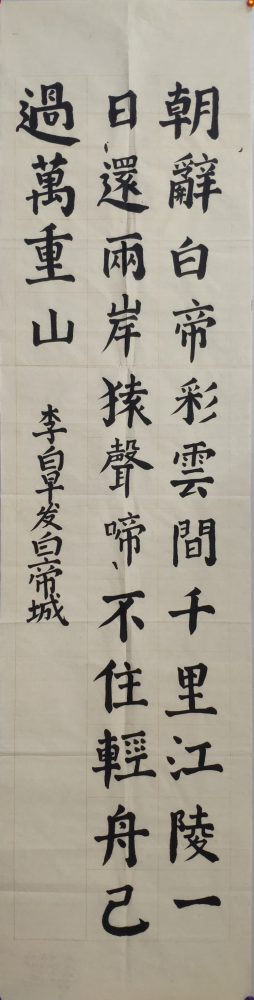 朝辭白帝彩雲間千里江陵一
日還兩岸猿聲啼不住輕舟己
過萬重山
李白早发皇帝城